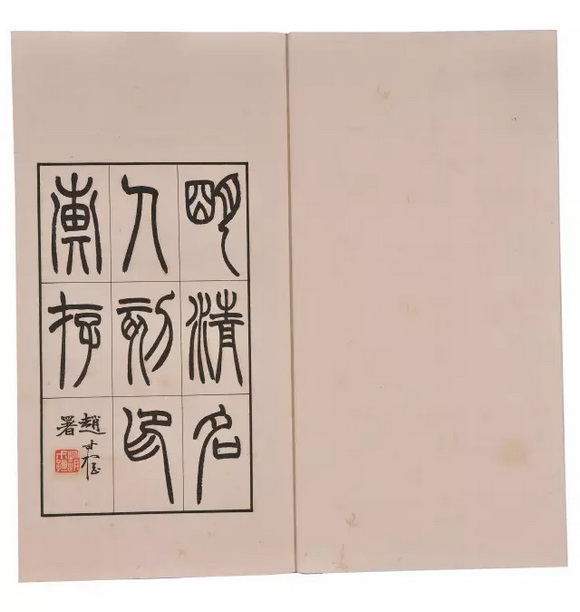 明清名
人刻印
彙存
趙
署